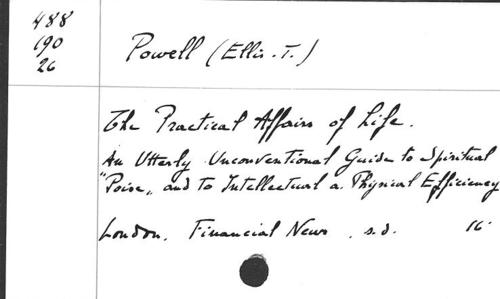 488
190
26
Powell (Ellis. T.)
The Practical Affairs of Life.
An Utterly Unconventional Guide to Spiritual
"Poise„ and to Intellectual a. Physical Efficiency
London. Financial News. s.d. 16°